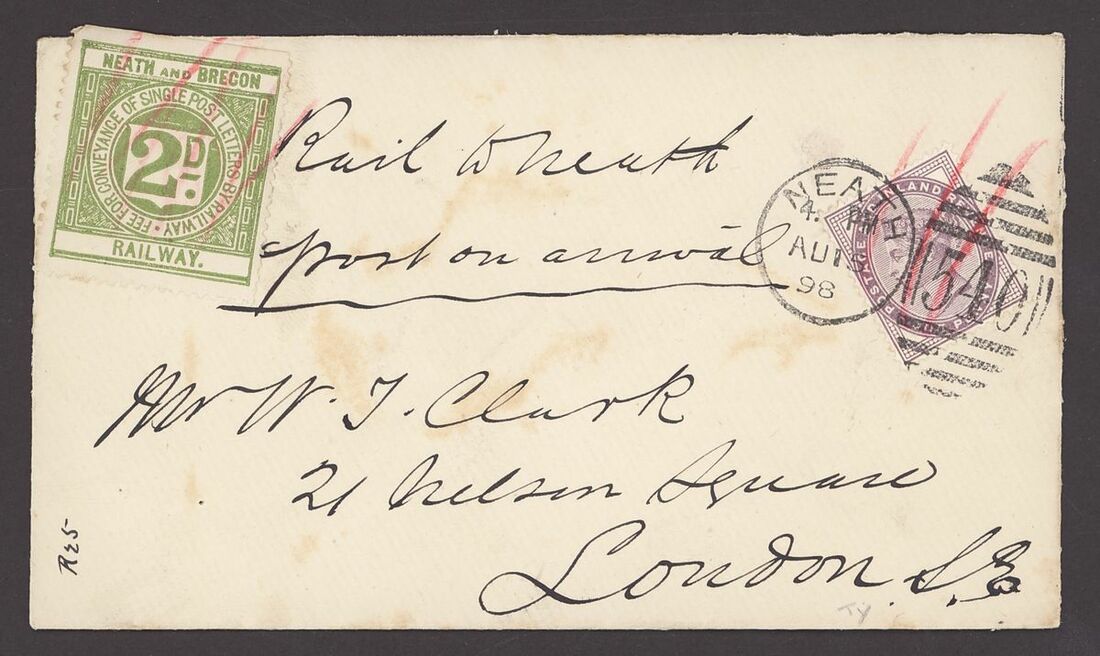 NEATH AND BRECON
FEE FOR CONVEYANCE OF SINGLE POST LETTERS BY RAILWAY
2D
RAILWAY.
Rail to Neath
post on arrival
NEATH
4. PM
AU
98
540
POSTAGE
INLAND
Mr W. J. Clark
21 Nelson Square
London S.E
R25